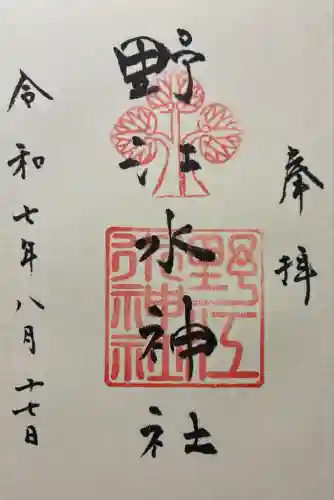 奉拝
野江水神社
野江
水神社
令和七年八月十七日